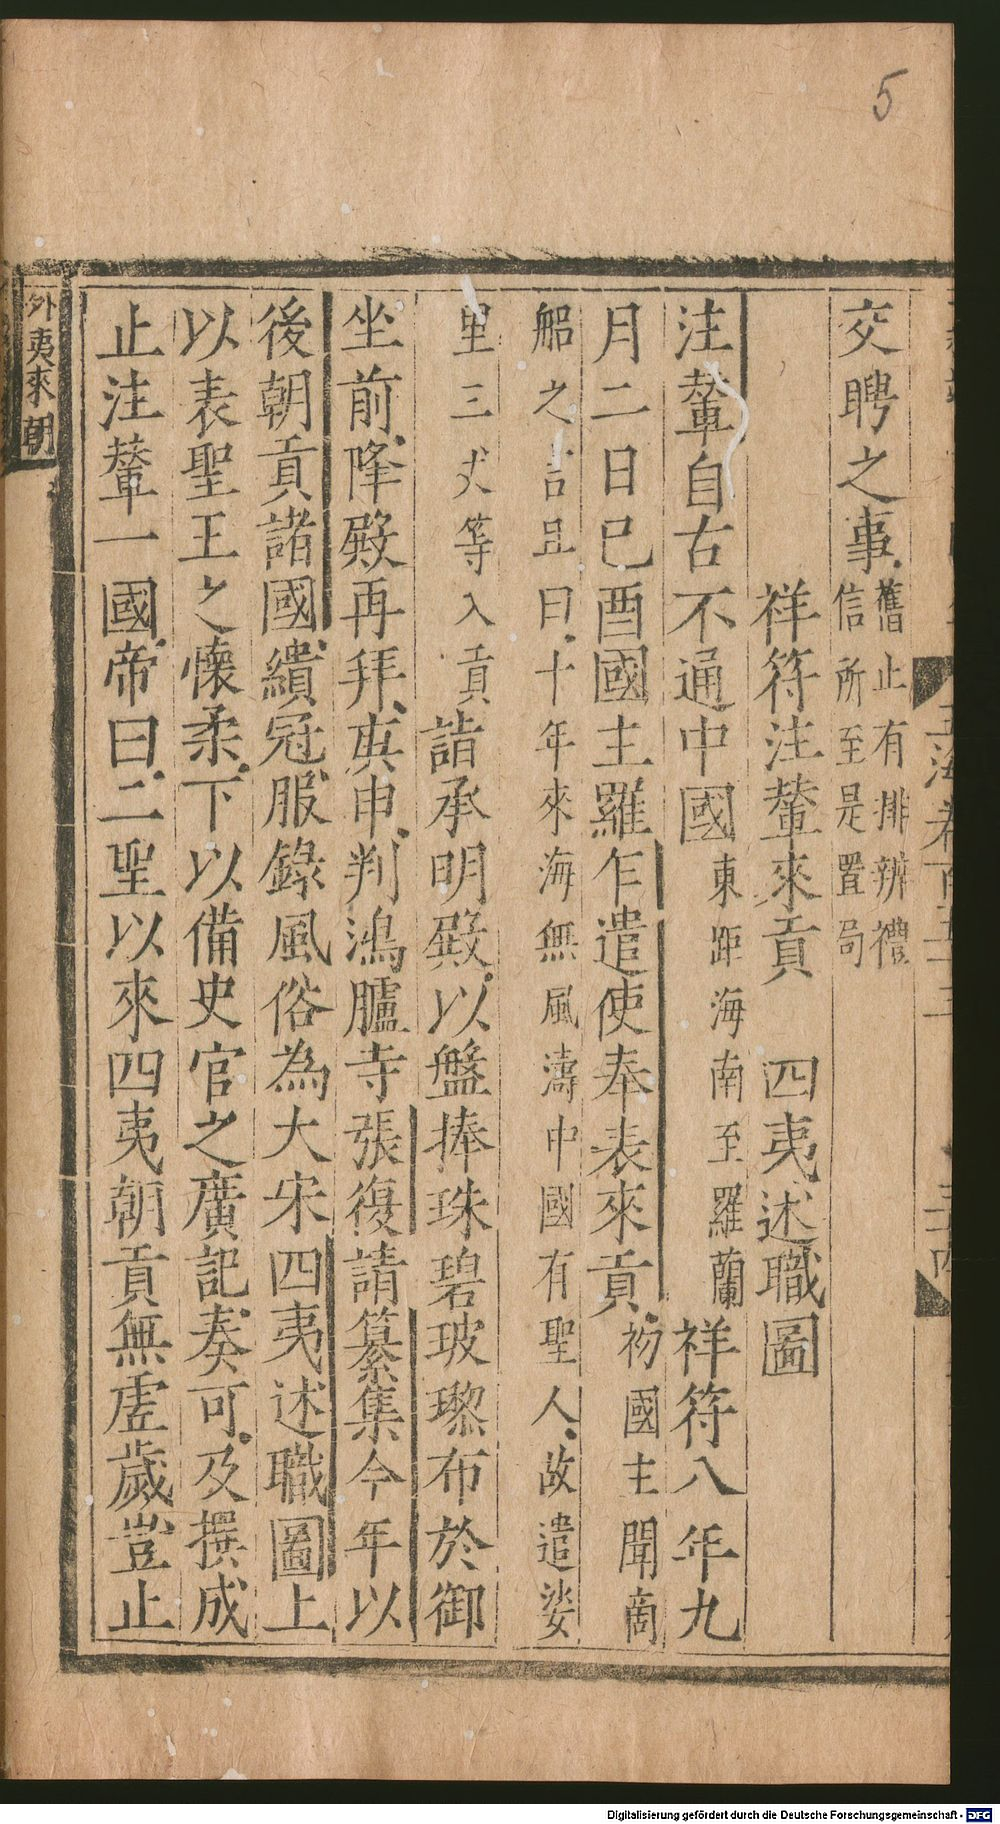 5
交聘之事舊止有排辨禮
信所至是置局
祥符注輦來貢 四夷述職圖
注輦自古不通中國東距海南至羅蘭祥符八年九
月二日己酉國主羅乍遣使奉表來貢初國主聞商
船之言且曰十年來海無風濤中國有聖人故遣娑
里三文等入貢詣承明殿以盤捧珠碧玻瓈布於御
坐前降殿再拜庚申判鴻臚寺張復請纂集今年以
後朝貢諸國繢冠服錄風俗為大宋四夷述職圖上
以表聖王之懷柔下以備史官之廣記奏可及撰成
止注輦一國帝曰二聖以來四夷朝貢無虛歲豈止
外夷來朝
Digitalisierung gefördert durch die Deutsche Forschungsgemeinschaft - DFG